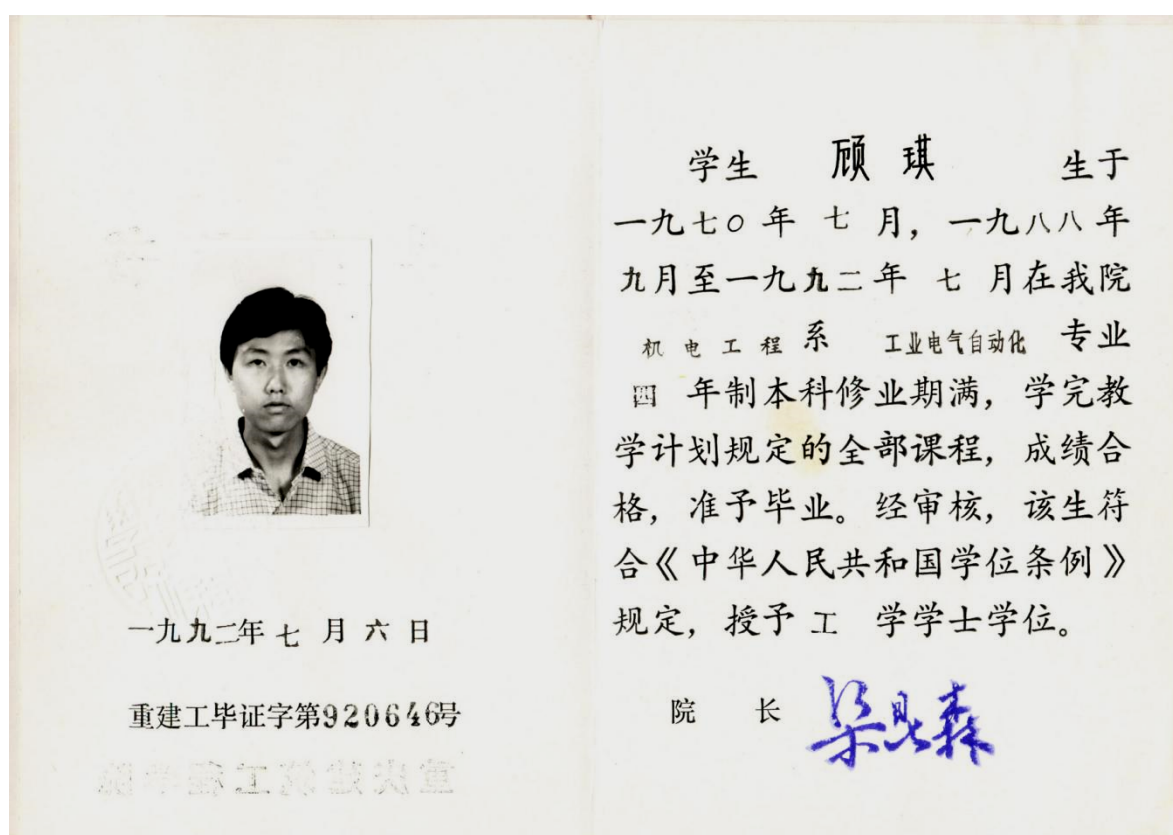 一九九二年 七 月 六 日
重建工毕证字第920646号
重庆建筑工程学院
学生 顾琪 生于
一九七〇年 七 月，一九八八年
九月至一九九二年 七 月在我院
机电工程系 工业电气自动化 专业
四 年制本科修业期满，学完教
学计划规定的全部课程，成绩合
格，准予毕业。经审核，该生符
合《中华人民共和国学位条例》
规定，授予 工 学学士学位。
院 长